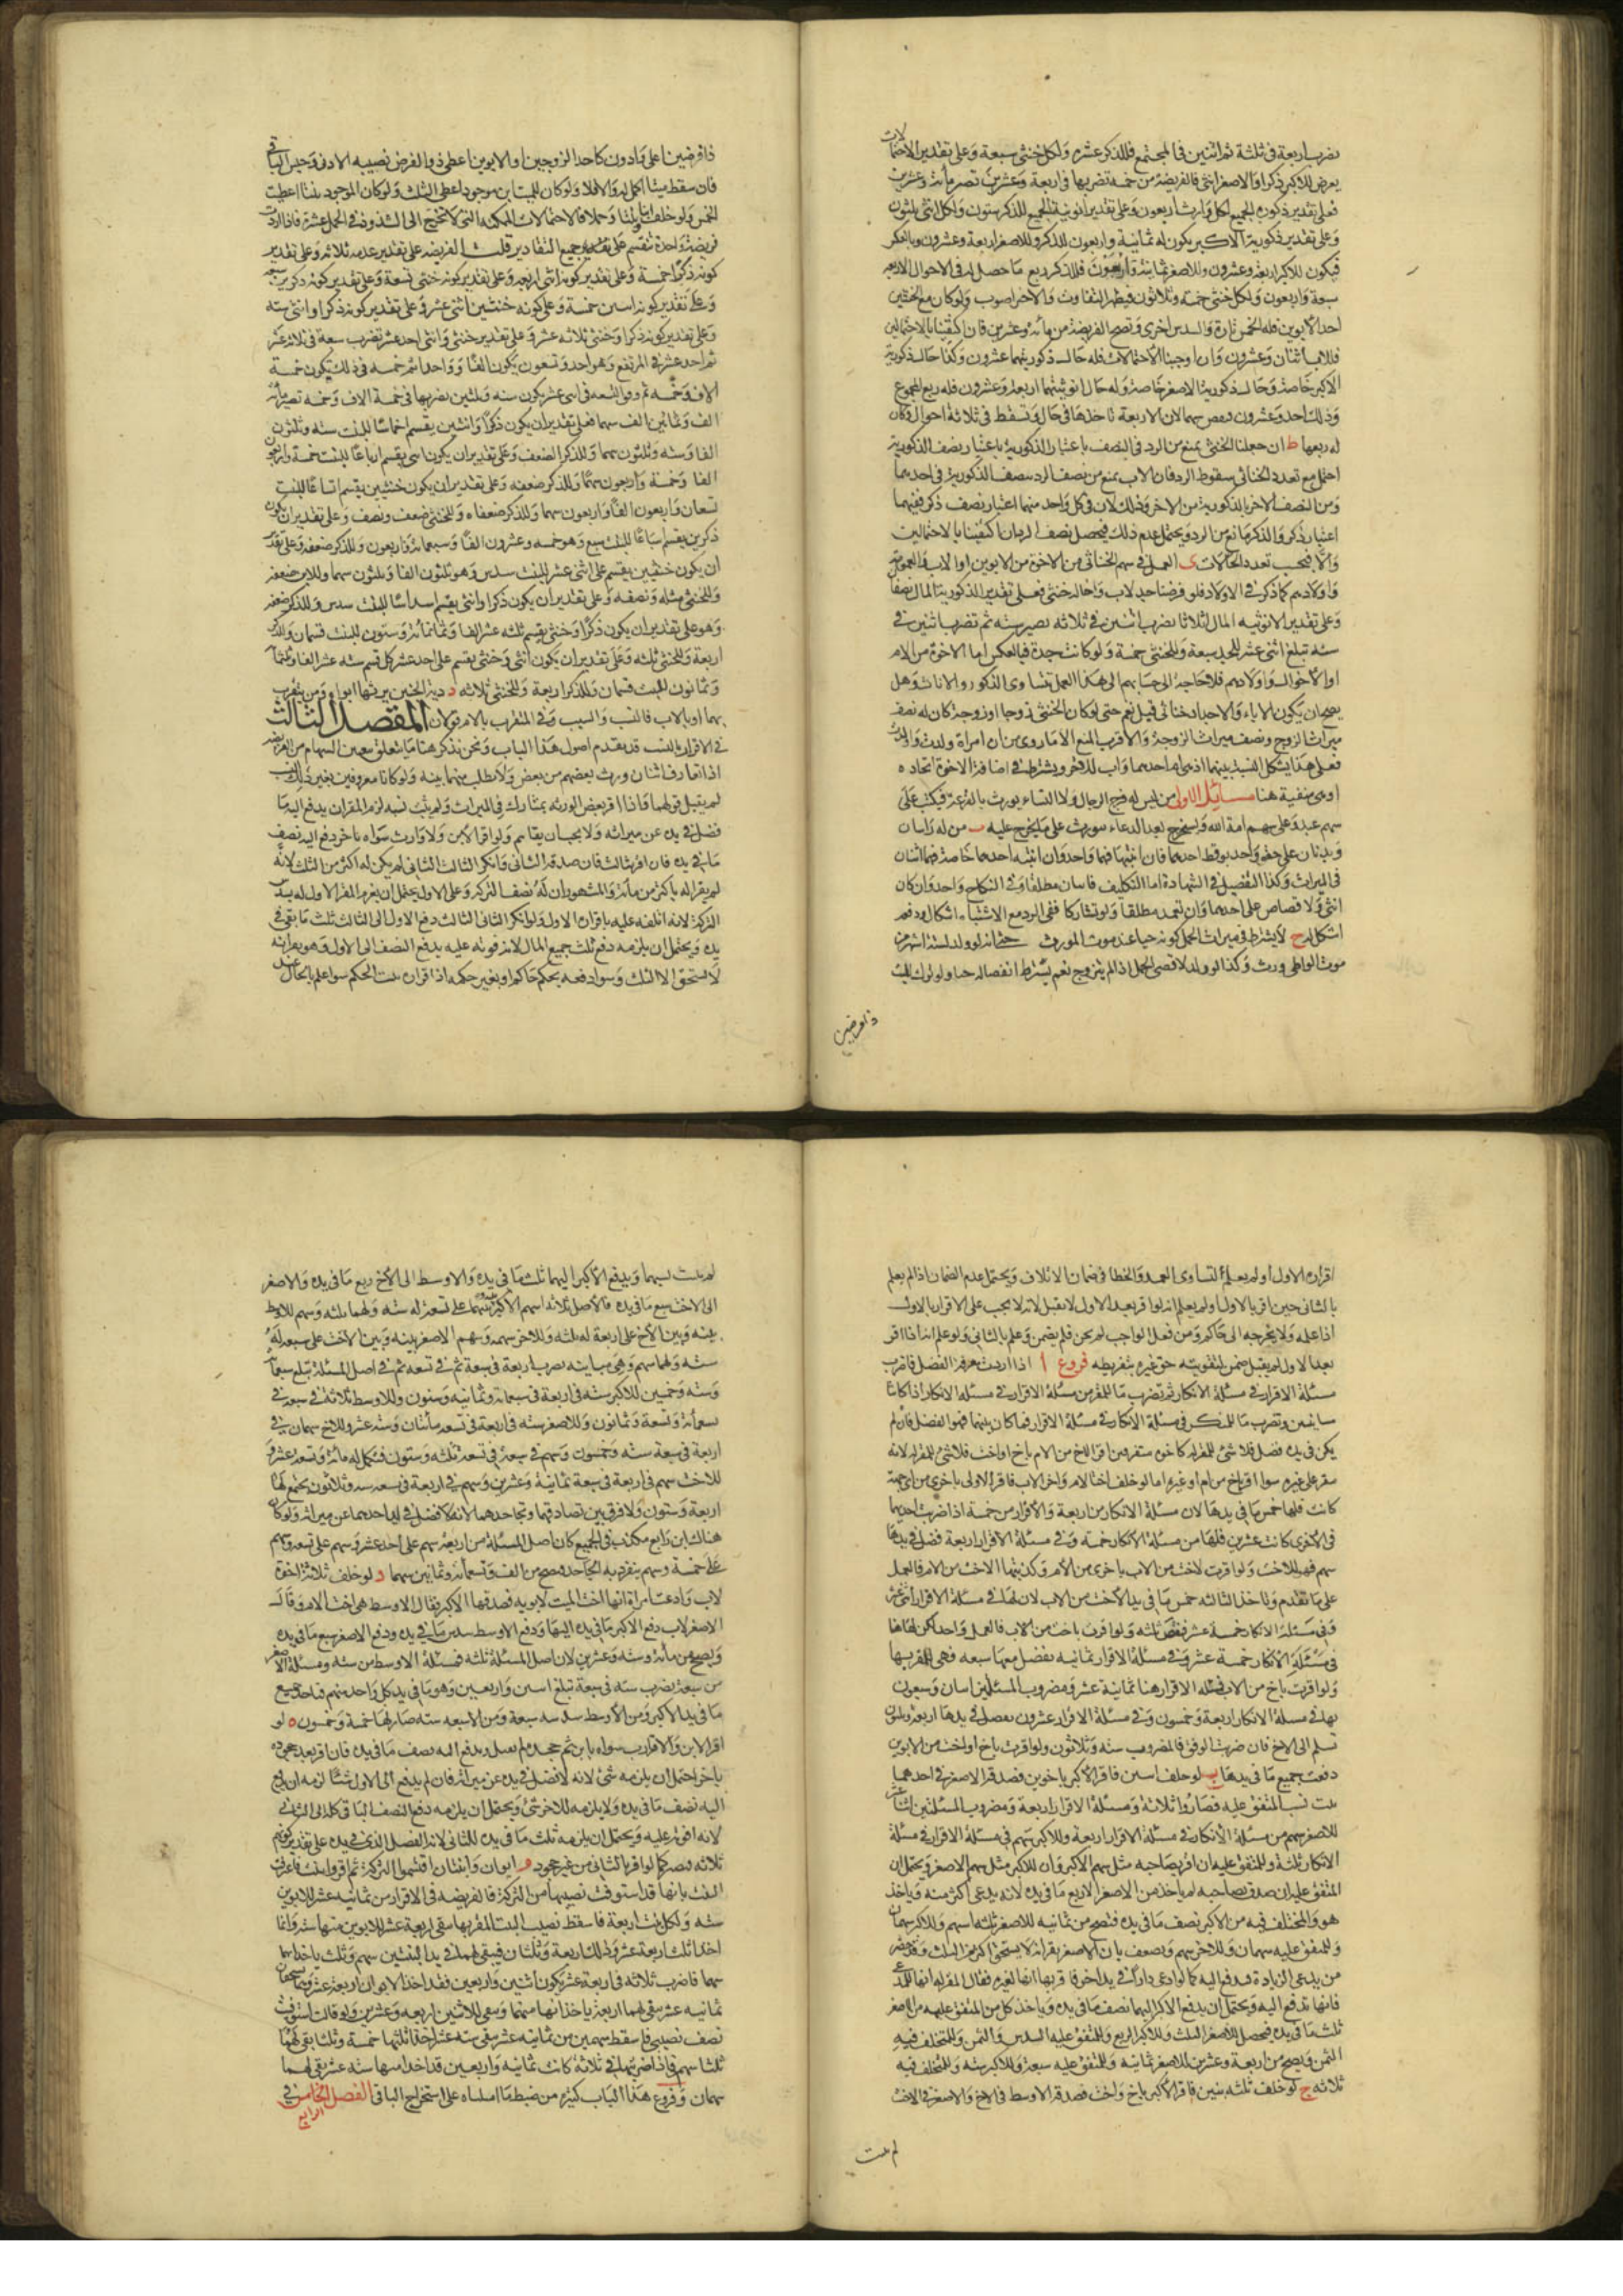 يضرب اربعة في ثلثة ثم اثنين في المجتمع فللذكر عشرة ولكل خنثى سبعة وعلى تقدير الاحتمالات
يعرض للاكبر ذكرا والاصغر انثى فالفريضة من خمسة تضربها في اربعة وعشرين تصير مائة وعشرين
فعلى تقدير ذكورية الجميع لكل وارث اربعون وعلى تقدير انوثية الجميع للذكر ستون ولكل انثى ثلثون
وعلى تقدير ذكورية الاكبر يكون له ثمانية واربعون وللذكر وللاصغر اربعة وعشرون وبالعكس
فيكون للاكبر اربعة وعشرون وللاصغر ثمانية واربعون فللذكر ربع ما حصل له في الاحوال الاربعة
سبعة واربعون ولكل خنثى خمسة وثلاثون فيظهر التفاوت والاخر اصوب ولو كان مع الخنثيين
احد الابوين فله الخمس تارة والسدس اخرى وتصح الفريضة من مائة وعشرين فان اكتفينا بالاحتمالين
فللاب اثنان وعشرون وان اوجبنا الاحتمالات فله حال ذكوريتهما عشرون وكذا حال ذكورية
الاكبر خاصة وحال ذكورية الاصغر خاصة وله حال انوثيتهما اربعة وعشرون فله ربع المجموع
وذلك احد وعشرون سهما لان الاربعة ناخذها في حال وتسقط في ثلاثة احوال وكان
له ربعها ط ان جعلنا الخنثى يمنع من الرد في النصف باعتبار الذكورية باعتبار نصف الذكورية
احتمل مع تعدد الخناثى سقوط الرد فان الاب يمنع من نصف الرد بنصف الذكورية في احدهما
ومن النصف الاخر بالذكورية من الاخر وذلك لان في كل واحد منهما اعتبار نصف ذكر ففيهما
اعتبار ذكر والذكر مانع من الرد ويحتمل عدم ذلك فيحصل نصف الرد ان اكتفينا بالاحتمالين
والا فبحسب تعدد الحالات ى العمل في سهم الخناثى من الاخوة من الابوين او الاب والعمومة
واولادهم كما ذكر في الاولاد فلو فرضنا جدا لاب واخا له خنثى فعلى تقدير الذكورية المال نصفان
وعلى تقدير الانوثية المال اثلاثا يضرب اثنين في ثلاثة يصير ستة ثم تضرب اثنين في
ستة تبلغ اثنى عشر للجد سبعة وللخنثى خمسة ولو كانت جدة فبالعكس اما الاخوة من الام
او الاخوال واولادهم فلا حاجة الى حسابهم الى هذا العمل تساوى الذكور والاناث وهل
يصح ان يكون الاباء والاجداد خناثى قيل نعم حتى لو كان الخنثى زوجا او زوجة كان له نصف
ميراث الزوج ونصف ميراث الزوجة والاقرب المنع الا ما روى من ان امراة ولدت واولدت
فعلى هذا يشكل النسبة بينهما اذ هى لاحدهما واب للاخر ويشترط في اضافة الاخوة اتحاد
او هى منفية هنا مسائل الاولى من ليس له فرج الرجال ولا النساء يورث بالقرعة فيكتب على
سهم عبد وعلى سهم امة الله ويستخرج بعد الدعاء فيورث على ما يخرج عليه ب من له راسان
وبدنان على حقو واحد يوقظ احدهما فان انتبها فهما واحد وان انتبه احدهما خاصة فهما اثنان
في الميراث وكذا التفصيل في الشهادة اما التكليف فاثنان مطلقا وفي النكاح واحد وان كان
انثى ولا قصاص على احدهما وان تعمد مطلقا ولو تشاركا ففى الرد مع الاشتباه اشكال ومع
اشكل ج لا يشترط في ميراث الحمل كونه حيا عند موت المورث حتى انه لو ولد لستة اشهر من
موت الواطى ورث وكذا لو ولد لاقصى الحمل اذا لم يتزوج نعم يشترط انفصاله حيا ولو ترك الميت
ذا فرضين
ذا فرضين اعلى وادون كاحد الزوجين او الابوين اعطى ذو الفرض نصيبه الادنى وحبس الباقي
فان سقط ميتا اكمل له والا فلا ولو كان للميت ابن موجود اعطى الثلث ولو كان الموجود بنتا اعطيت
الخمس ولو خلف ابنا وبنتا وحملا فالاحتمالات الممكنة التى لا تخرج الى الشذوذ في الحمل عشرة فاذا اردت
فريضة واحدة تنقسم على تقدير جميع التقادير قلت الفريضة على تقدير عدمه ثلاثة وعلى تقدير
كونه ذكرا خمسة وعلى تقدير كونه انثى اربعة وعلى تقدير كونه خنثى تسعة وعلى تقدير كونه ذكرين سبعة
وعلى تقدير كونه انثيين خمسة وعلى كونه خنثيين اثنى عشر وعلى تقدير كونه ذكرا وانثى ستة
وعلى تقدير كونه ذكرا وخنثى ثلاثة عشر وعلى تقدير خنثى وانثى احد عشر تضرب سبعة في ثلاثة عشر
ثم احد عشر في المرتفع وهو احد وتسعون يكون الفا وواحدا ثم خمسة في ذلك يكون خمسة
الاف وخمسة ثم وفق التسعة في اثنى عشر يكون ستة وثلثين يضربها في خمسة الاف وخمسة تصير مائة
الف وثمانين الف سهما فعلى تقدير ان يكون ذكرا وانثيين يقسم اخماسا للبنت ستة وثلثون
الفا وستة وثلثون سهما وللذكر الضعف وعلى تقدير ان يكون انثى يقسم ارباعا للبنت خمسة واربعون
الفا وخمسة واربعون سهما وللذكر ضعفه وعلى تقدير ان يكون خنثيين يقسم اتساعا للبنت
تسعان واربعون الفا واربعون سهما وللذكر ضعفاه وللخنثى ضعف ونصف وعلى تقدير ان يكون
ذكرين يقسم اسباعا للبنت سبع وهو خمسة وعشرون الفا وسبعمائة واربعون وللذكر ضعفه وعلى تقدير
ان يكون خنثيين يقسم على اثنى عشر للبنت سدس وهو ثلثون الفا وثلثون سهما وللابن ضعفه
وللخنثى مثله ونصفه وعلى تقدير ان يكون ذكرا وانثى يقسم اسداسا للبنت سدس وللذكر ضعفه
وهو على تقدير ان يكون ذكرا وخنثى يقسم ثلثة عشر الفا وثمانمائة وستون للبنت قسمان وللذكر
اربعة وللخنثى ثلثة وعلى تقدير ان يكون انثى وخنثى يقسم على احد عشر كل قسم ستة عشر الفا وثلثمائة
وثمانون للبنت قسمان وللذكر اربعة وللخنثى ثلاثة د دية الجنين يرثها ابواه ومن يتقرب
بهما او بالاب فالنسب والسبب وفي المتقرب بالام قولان المقصد الثالث
في الاقرار بالنسب قد تقدم اصول هذا الباب ونحن نذكر هنا ما يتعلق بتعيين السهام من الفريضة
اذا تعارف اثنان ورث بعضهم من بعض ولا يطلب منهما بينة ولو كانا معروفين بغير ذلك النسب
لم يقبل قولهما واذا اقر بعض الورثة بمشارك في الميراث ولم يثبت نسبه لزم المقر ان يدفع اليه ما
فضل في يده عن ميراثه ولا يجب ان يقاسم ولو اقر الابن ولا وارث سواه باخر دفع اليه نصف
ما في يده فان اقر بثالث فان صدقه الثاني وانكر الثالث الثاني لم يكن له اكثر من الثلث لانه
لم يقر له باكثر من مائة والمشهور ان له نصف التركة وعلى الاول يحتمل ان يغرم المقر الاول له سدس
التركة لانه اتلفه عليه باقراره الاول ولو انكر الثاني الثالث دفع الاول الى الثالث ثلث ما بقى في
يده ويحتمل ان يلزمه دفع ثلث جميع المال لانه فوته عليه بدفع النصف الى الاول وهو يقر انه
لا يستحق الا الثلث وسواء دفعه بحكم حاكم او بغير حكمه اذا اقراره يثبت الحكم سواء علم بالحال عند
اقراره الاول او لم يعلم لتساوى العمد والخطا في ضمان الاتلاف ويحتمل عدم الضمان اذا لم يعلم
بالثاني حين اقر بالاول او لم يعلم انه لو اقر بعد الاول لا يقبل لانه لا يجب على الاقرار بالاول
اذا علمه ولا يحوجه الى حاكم ومن فعل الواجب لم يخن فلم يضمن ولو علم بالثاني ولو علم انه اذا اقر
بعد الاول لم يقبل ضمن لتفويته حق غيره بتفريطه فروع ا اذا اردت معرفة الفضل فاضرب
مسئلة الاقرار في مسئلة الانكار ثم تضرب ما للمقر من مسئلة الاقرار في مسئلة الانكار اذا كانتا
متباينتين وتضرب ما للمنكر في مسئلة الانكار في مسئلة الاقرار فما كان بينهما فهو الفضل فان لم
يكن في يده فضل فلا شئ للمقر له كاخوة متفرقين اقر الاخ من الام باخ او اخت فلا شئ للمقر له لانه
مقر على غيره سواء اقر باخ من ام او غيره اما لو خلف اختا لام واخرى لاب فاقرت الاولى باخرى من اى جهة
كانت فلها خمس ما في يدها لان مسئلة الانكار من اربعة والاقرار من خمسة اذا ضربت احديهما
في الاخرى كانت عشرين فلها من مسئلة الانكار خمسة وفي مسئلة الاقرار اربعة فضل في يدها
سهم فهو للاخت ولو اقرت لاخت من الاب باخرى من الام وكذبتهما الاخت من الام فالعمل
على ما تقدم وتاخذ الثالثة خمس ما في يد الاخت من الاب لان لها في مسئلة الاقرار اثنى عشر
وفي مسئلة الانكار خمسة عشر ففضل ثلثة ولو اقرت باخت من الاب فالعمل واحد لكن لها هنا
في مسئلة الانكار خمسة عشر وفي مسئلة الاقرار ثمانية تفضل معها سبعة فهى للمقر بها
ولو اقرت باخ من الاب فمسئلة الاقرار هنا ثمانية عشر ومضروب المسئلتين اثنان وسبعون
لها في مسئلة الانكار اربعة وخمسون وفي مسئلة الاقرار عشرون تفضل في يدها اربعة وثلثون
تسلم الى الاخ فان ضربت الوفق فالمضروب ستة وثلاثون ولو اقرت باخ او اخت من الابوين
دفعت جميع ما في يدها ب لو خلف ابنين فاقر الاكبر باخوين فصدقه الاصغر في احدهما
ثبت نسب المتفق عليه فصاروا ثلاثة ومسئلة الاقرار اربعة ومضروب المسئلتين اثنا عشر
للاصغر سهم من مسئلة الانكار في مسئلة الاقرار اربعة وللاكبر سهم في مسئلة الاقرار في مسئلة
الانكار ثلثة وللمتفق عليه ان اقر بصاحبه مثل سهم الاكبر وان انكر مثل سهم الاصغر ويحتمل ان
المتفق عليه ان صدق بصاحبه لم ياخذ من الاصغر الا ربع ما في يده لانه لا يدعى اكثر منه وياخذ
هو والمختلف فيه من الاكبر نصف ما في يده فتصح من ثمانية للاصغر ثلثة اسهم وللاكبر سهمان
وللمتفق عليه سهمان وللاخر سهم ويضعف بان الاصغر يقر انه لا يستحق اكثر من الثلث وقد حضر
من يدعى الزيادة فيدفع اليه كما لو ادعى دارا في يد اخر فاقر بها انها لغيره فقال المقر له انها للمدعى
فانها تدفع اليه ويحتمل ان يدفع الاكبر اليهما نصف ما في يده وياخذ كل من المتفق عليه من الاصغر
ثلث ما في يده فيحصل للاصغر الثلث وللاكبر الربع وللمتفق عليه السدس والثمن وللمختلف فيه
الثمن ويصح من اربعة وعشرين للاصغر ثمانية وللمتفق عليه سبعة وللاكبر ستة وللمختلف فيه
ثلاثة ج لو خلف ثلثة بنين فاقر الاكبر باخ واخت فصدقه الاوسط في الاخ والاصغر في الاخت
لم يثبت
لم يثبت نسبهما ويدفع الاكبر اليهما ثلث ما في يده والاوسط الى الاخ ربع ما في يده والاصغر
الى الاخت سبع ما في يده فالاصل ثلاثة اسهم الاكبر بينهما على تسعة له ستة ولهما ثلثة وسهم للاوسط
بينه وبين الاخ على اربعة له ثلثة وللاخر سهم وسهم الاصغر بينه وبين الاخت على سبعة له
ستة ولها سهم وهى متباينة تضرب اربعة في سبعة ثم في تسعة ثم في اصل المسئلة تبلغ سبعمائة
وستة وخمسين للاكبر ستة في اربعة في سبعة مائة وثمانية وستون وللاوسط ثلاثة في سبعة في
تسعة مائة وتسعة وثمانون وللاصغر ستة في اربعة في تسعة مائتان وستة عشر وللاخ سهمان في
اربعة في سبعة ستة وخمسون وسهم في سبعة في تسعة ثلثة وستون فيكمل له مائة وتسعة عشر و
للاخت سهم في اربعة في سبعة ثمانية وعشرين وسهم في اربعة في تسعة ستة وثلاثون يجتمع لها
اربعة وستون ولا فرق بين تصادقهما وتجاحدهما لانه لا فضل في يد احدهما عن ميراثه ولو كان
هناك ابن رابع مكذب في الجميع كان اصل المسئلة من اربعة سهم على احد عشر وسهم على تسعة وسهم
على خمسة وسهم ينفرد به الجاحد فتصح من الف وتسعمائة وثمانين سهما د لو خلف ثلاثة اخوة
لاب وادعت امراة انها اخت الميت لابويه فصدقها الاكبر فقال الاوسط هى اخت لام وقال
الاصغر لاب دفع الاكبر ما في يده اليها ودفع الاوسط سدس ما في يده ودفع الاصغر سبع ما في يده
ويصح من مائة وستة وعشرين لان اصل المسئلة ثلثة فمسئلة الاوسط من ستة ومسئلة الاصغر
من سبعة يضرب ستة في سبعة تبلغ اثنين واربعين وهو ما في يد كل واحد منهم فتاخذ جميع
ما في يد الاكبر ومن الاوسط سدسه سبعة ومن الاصغر سبعه ستة صار لها خمسة وخمسون ه لو
اقر الابن ولا وارث سواه بابن ثم جحده لم يقبل ويدفع اليه نصف ما في يده فان اقر بعد جحوده
باخر احتمل ان يلزمه شئ لانه لا فضل في يده عن ميراثه فان لم يدفع الى الاول شيئا لزمه ان يدفع
اليه نصف ما في يده ولا يلزمه للاخر شئ ويحتمل ان يلزمه دفع النصف الباقي كله الى الثاني
لانه اقر عليه ويحتمل ان يلزمه ثلث ما في يده للثاني لانه الفضل الذى في يده على تقدير كونهم
ثلاثة فيصير كما لو اقر بالثاني من غير جحود و ابوان وابنتان اقتسموا التركة ثم اقروا ببنت فاعترفت
البنت بانها قد استوفت نصيبها من التركة فالفريضة في الاقرار من ثمانية عشر للابوين
ستة ولكل بنت اربعة فاسقط نصيب البنت المقر بها يبقى اربعة عشر للابوين منها ستة وانما
اخذا ثلث اربعة عشر وذلك اربعة وثلثان فيبقى لهما في يد البنتين سهم وثلث ياخذانها
سهما فاضرب ثلاثة في اربعة عشر يكون اثنين واربعين فقد اخذ الابوان اربعة عشر وهما يستحقان
ثمانية عشر يبقى لهما اربعة ياخذانها منهما ويبقى للابنتين اربعة وعشرين ولو قالت استوفيت
نصف نصيبى فاسقط سهمين من ثمانية عشر يبقى ستة عشر اخذا ثلثها خمسة وثلثا بقى لهما
ثلثا سهم فاذا ضربتها في ثلاثة كانت ثمانية واربعين قد اخذا منها ستة عشر بقى لهما
سهمان وفروع هذا الباب كثيرة من ضبط ما اصلناه على استخراج الباقي الفصل الخامس في
الرابع